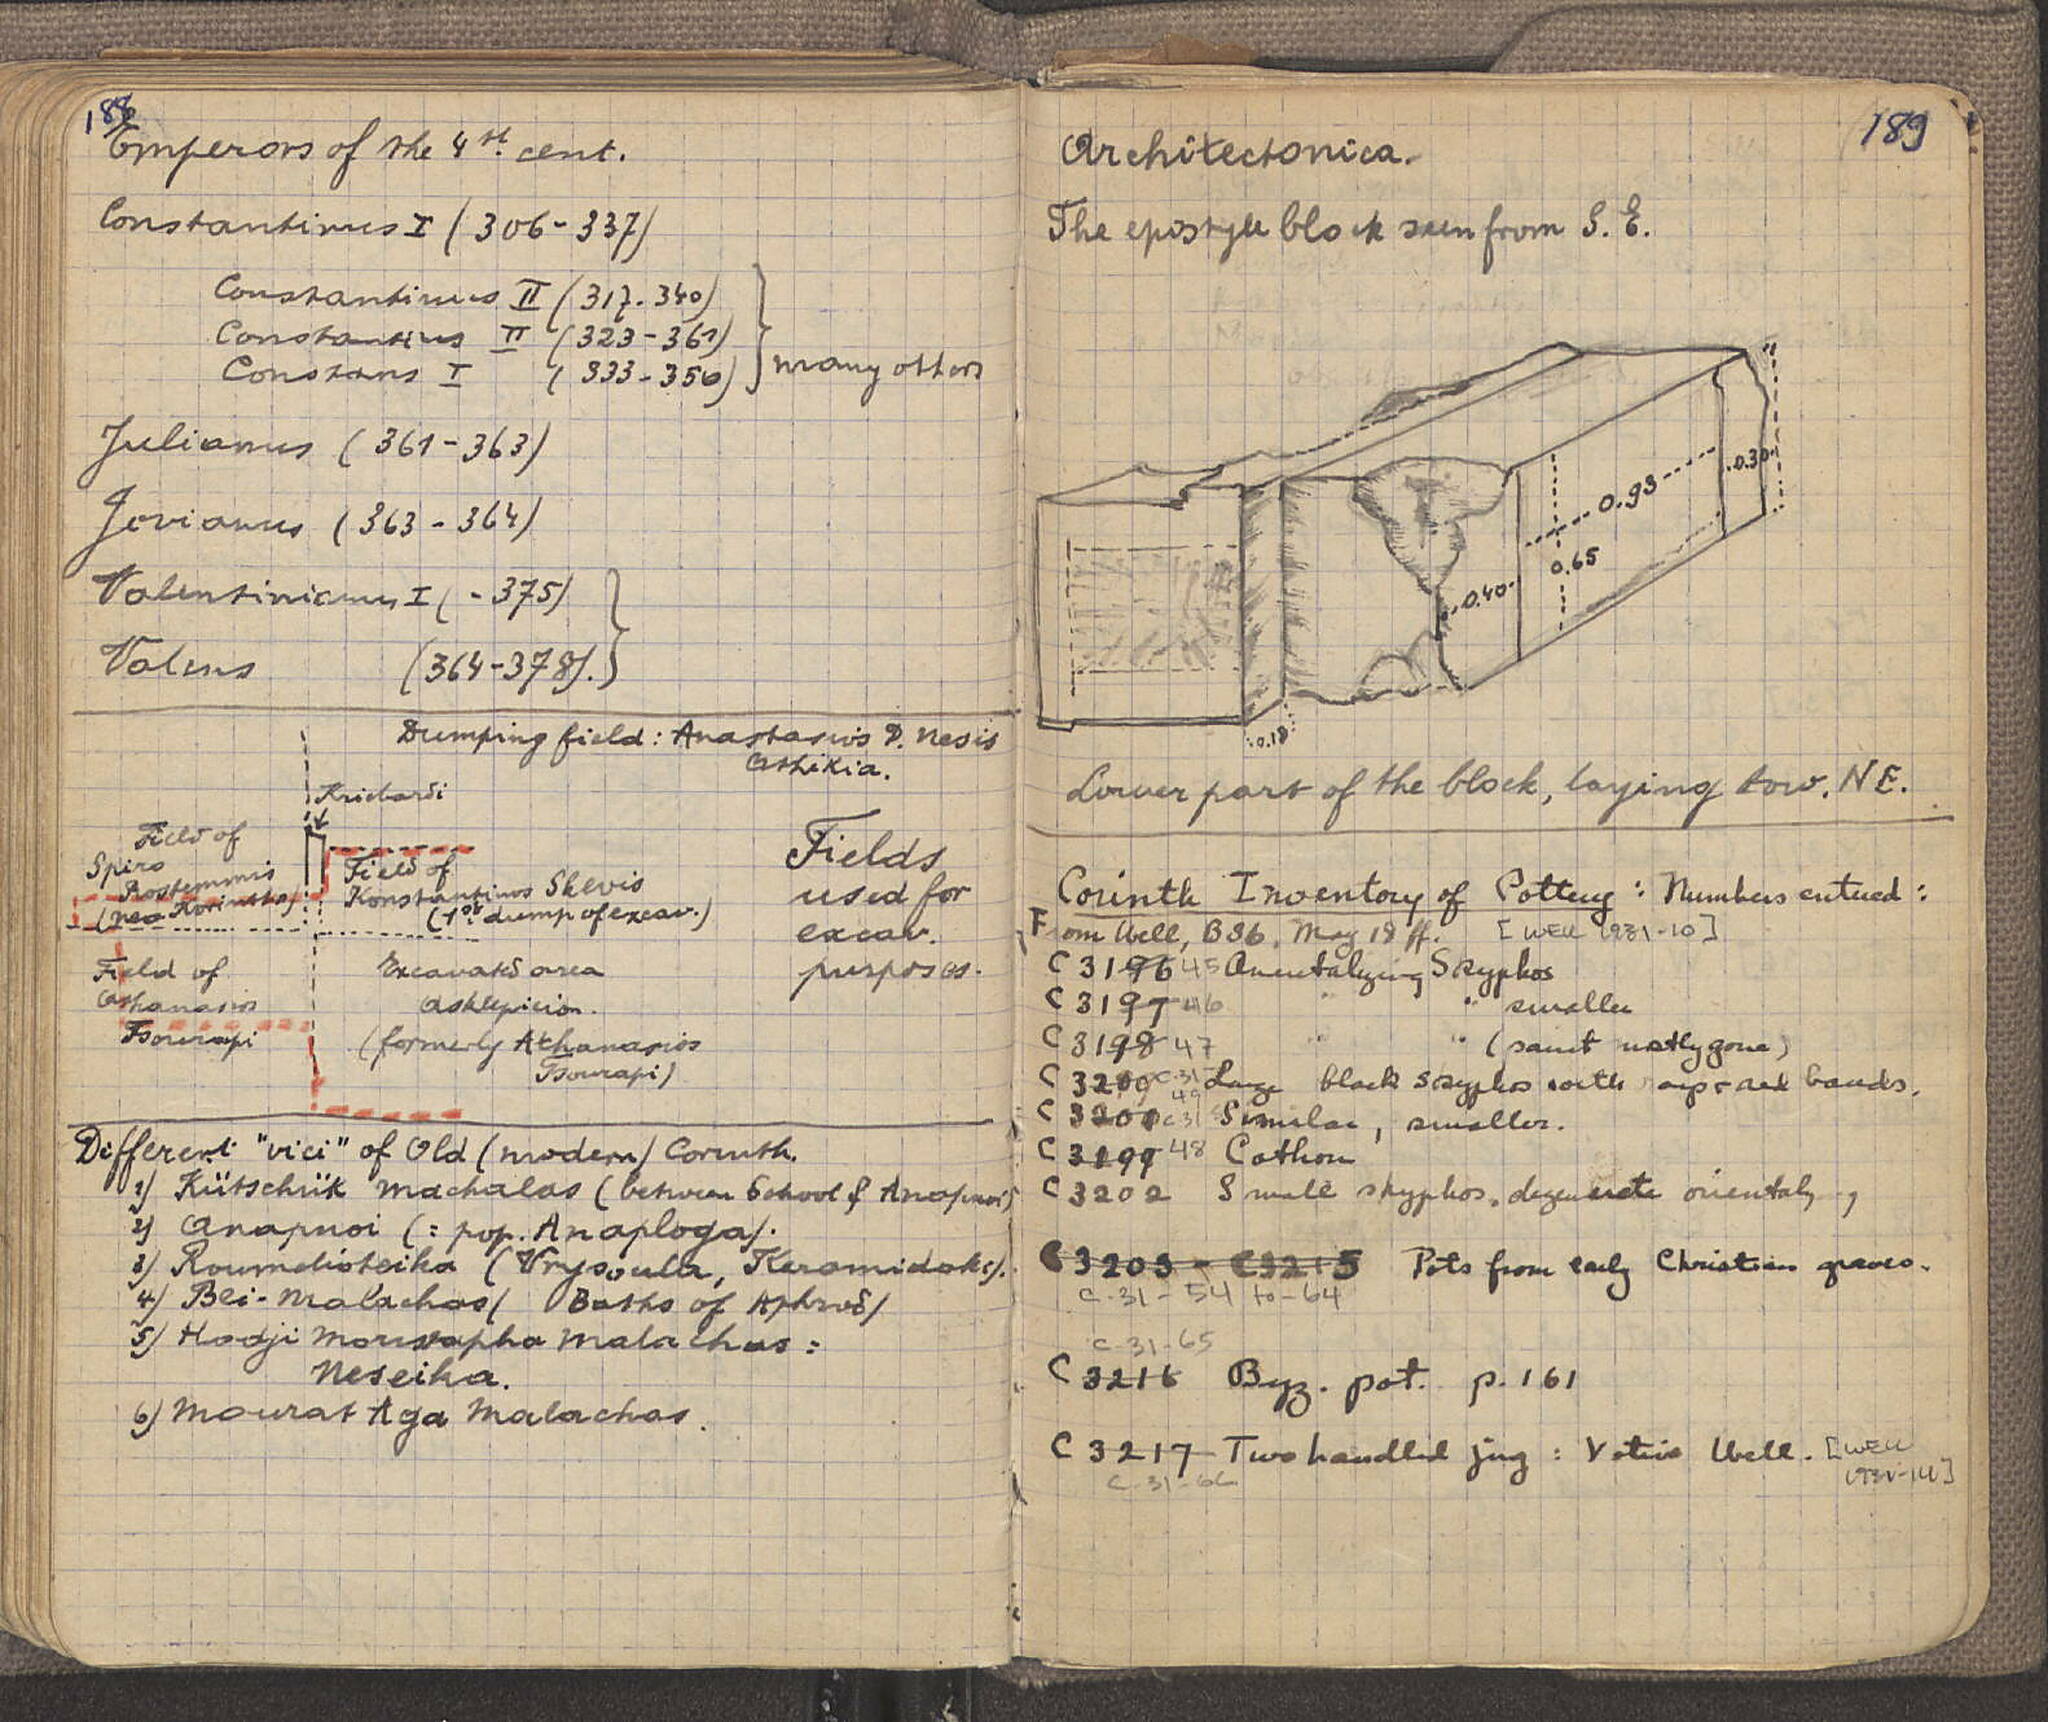 188
Emperors of the 4th cent.
Constantinus I (306-337)
Constantinus II (317-340)
Constantius II (323-361)
Constans I (333-350)
many others
Julianus (361-363)
Jovianus (363-364)
Valentinianus I (-375)
Valens (364-378).
Dumping field: Anastasios D. Nesis
Athikia.
Kricbardi
Field of
Spiro
Rostemmis
(neo Korinthos)
Field of
Konstantinos Skevis
(1st dump of excav.)
Fields
used for
excav.
purposes.
Field of
Athanasios
Tsourapi
Excavated area
Asklepieion.
(formerly Athanasios
Tsourapi)
Different "vici" of Old (modern) Corinth.
1) Kütschük machalas (between School & Anapnoi)
2) Anapnoi (= pop. Anaploga).
3) Roumelioteika (Vrysoula, Keramidaki).
4) Bei-Malachas ( Baths of Aphrod)
5) Hadji Moustapha Malachas =
Neseika.
6) Mourat Aga Malachas.
189
Architectonica.
The epistyle block seen from S.E.
0.93
0.30
0.65
0.40
0.18
Lower part of the block, laying tow. NE.
Corinth Inventory of Pottery: Numbers entered:
From Well, B36, May 18 ff. [WELL 1931-10]
C 3196 45 Orientalizing Skyphos
C 3197 46 " " smaller
C 3198 47 " " (paint mostly gone)
C 3200 C-31- 49 Large black skyphos with red bands.
C 3201 C31 Similar, smaller.
C 3199 48 Cothon
C 3202 Small skyphos, degenerate oriental,
C 3203 - C3215 Pots from early Christian graves.
C-31-54 to -64
C-31-65
C 3216 Byz. pot. p. 161
C 3217 Two handled jug: Votive Well. [WELL
C-31-66